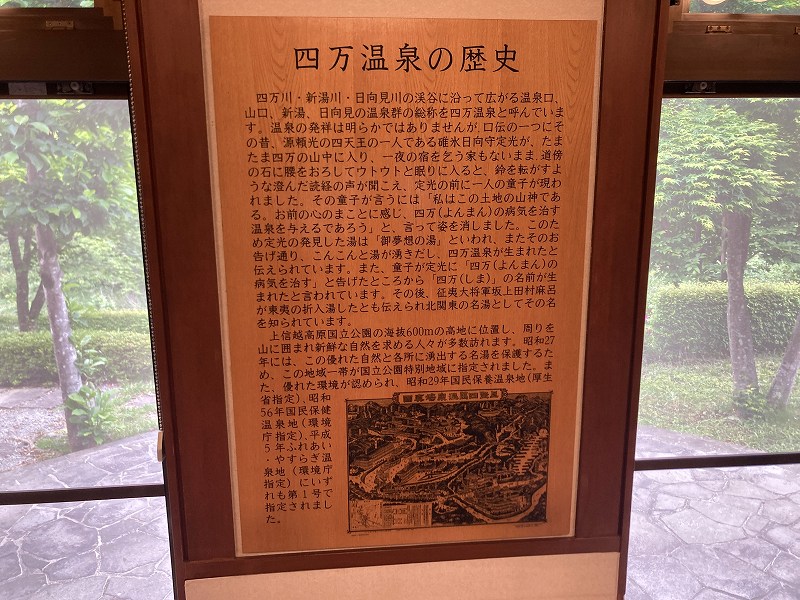 四万温泉の歴史
四万川・新湯川・日向見川の渓谷に沿って広がる温泉口、
山口、新湯、日向見の温泉群の総称を四万温泉と呼んでいま
す。温泉の発祥は明らかではありませんが、口伝の一つにそ
の昔、源頼光の四天王の一人である碓氷日向守定光が、たま
たま四万の山中に入り、一夜の宿を乞う家もないまま、道傍
の石に腰をおろしてウトウトと眠りに入ると、鈴を転がすよ
うな澄んだ読経の声が聞こえ、定光の前に一人の童子が現わ
れました。その童子が言うには「私はこの土地の山神であ
る。お前の心のまことに感じ、四万(よんまん)の病気を治す
温泉を与えるであろう」と、言って姿を消しました。このた
め定光の発見した湯は「御夢想の湯」といわれ、またそのお
告げ通り、こんこんと湯が湧きだし、四万温泉が生まれたと
伝えられています。また、童子が定光に「四万(よんまん)の
病気を治す」と告げたところから「四万(しま)」の名前が生
まれたと言われています。その後、征夷大将軍坂上田村麻呂
が東夷の折入湯したとも伝えられ北関東の名湯としてその名
を知られています。
上信越高原国立公園の海抜600mの高地に位置し、周りを
山に囲まれ新鮮な自然を求める人々が多数訪れます。昭和27
年には、この優れた自然と各所に湧出する名湯を保護するた
め、この地域一帯が国立公園特別地域に指定されました。ま
た、優れた環境が認められ、昭和29年国民保養温泉地(厚生
省指定)、昭和
56年国民保健
温泉地(環境
庁指定)、平成
5年ふれあい
・やすらぎ温
泉地(環境庁
指定)にいず
れも第1号で
指定されまし
た。